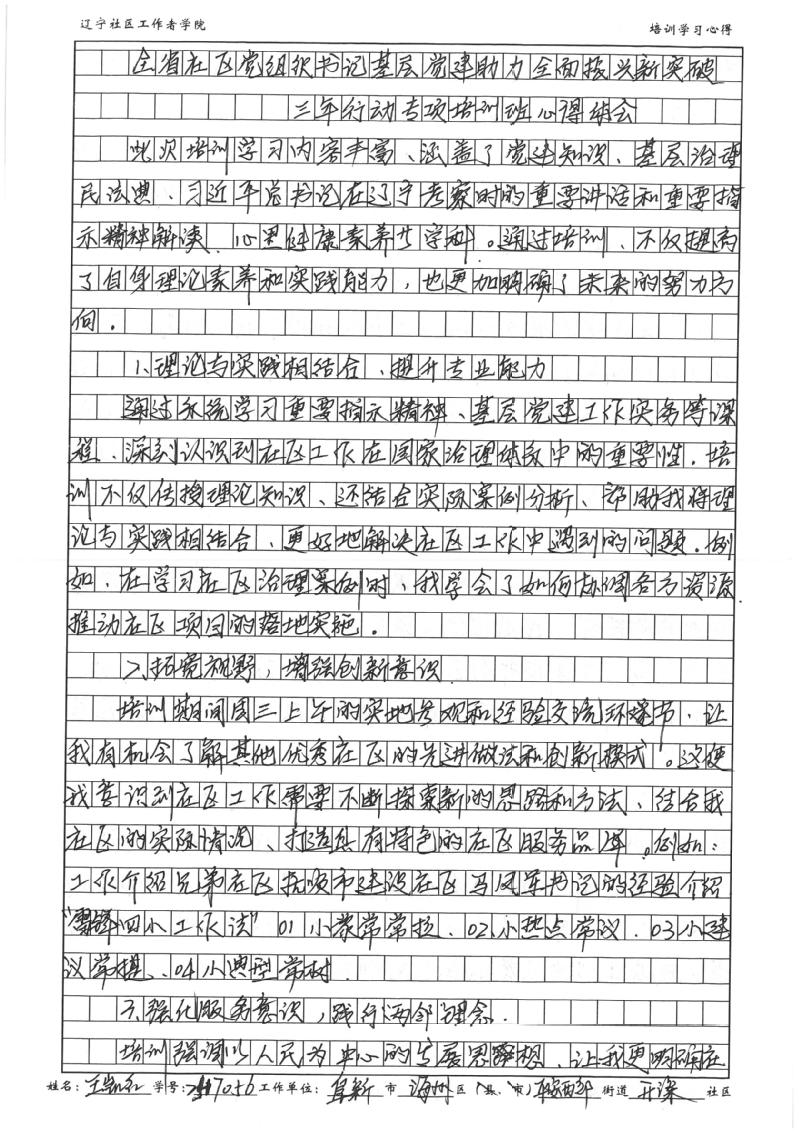 辽宁社区工作者学院 培训学习心得
全省社区党组织书记基层党建助力全面振兴新突破
三年行动专项培训班心得体会
此次培训学习内容丰富、涵盖了党建知识、基层治理
民法典、习近平总书记在辽宁考察时的重要讲话和重要指
示精神解读、心里健康素养共学科。通过培训、不仅提高
了自身理论素养和实践能力，也更加明确了未来的努力方
向.
1、理论与实践相结合、提升专业能力
通过系统学习重要指示精神、基层党建工作实务等课
程、深刻认识到社区工作在国家治理体系中的重要性.培
训不仅传授理论知识、还结合实际案例分析、帮助我将理
论与实践相结合、更好地解决社区工作中遇到的问题.例
如、在学习社区治理案例时、我学会了如何协调各方资源.
推动社区项目的落地实施.
2、拓宽视野，增强创新意识.
培训期间周三上午的实地参观和经验交流环节、让
我有机会了解其他优秀社区的先进做法和创新模式。这使
我意识到社区工作需要不断探索新的思路和方法、结合我
社区的实际情况、打造具有特色的社区服务品牌。例如：
工作介绍兄弟社区抚顺市建设社区马凤军书记的经验介绍
“雷锋四小工作法”01小 常常 、02小热点常议.03小建
议常提、04小典型常树.
3、强化服务意识，践行“两邻”理念.
培训强调以人民为中心的发展思想、让我更明确在
姓名： 学号： 7056 工作单位：阜新 市 海州 区（县、市） 西部 街道 社区